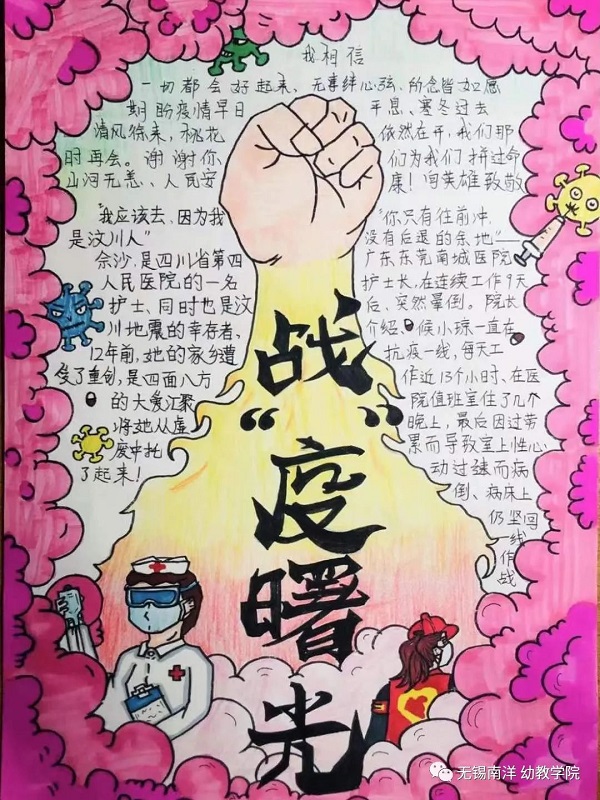 我相信
一切都会好起来，无事绊心弦，所念皆如愿
期盼疫情早日平息、寒冬过去
清风徐来，桃花依然在开，我们那
时再会。谢谢你，们为我们拼过命
山河无恙、人民安康！向英雄致敬
"我应该去，因为我
是汶川人"
佘沙，是四川省第四
人民医院的一名
护士、同时也是汶
川地震的幸存者，
12年前，她的家乡遭
受了重创，是四面八方
的大爱汇聚
将她从虚
废中托
了起来！
"你只有往前冲，
没有后退的余地"——
广东东莞南城医院
护士长，在连续工作9天
后、突然晕倒。院长
介绍：候小琼一直在
抗疫一线，每天工
作近13个小时、在医
院值班室住了几个
晚上，最后因过劳
累而导致室上性心
动过速而病
倒、病床上
仍坚回
一线
作
战
战
"疫"
曙
光
无锡南洋 幼教学院